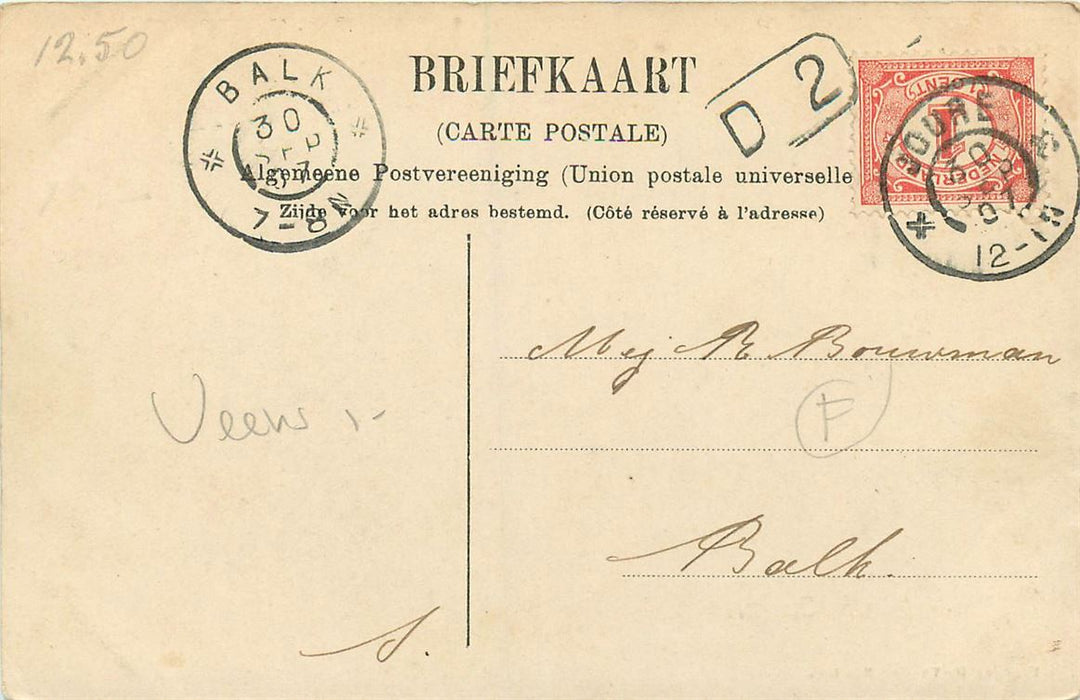 12.50
BALK
30
SEP
07
7-8N
BRIEFKAART
(CARTE POSTALE)
Algemeene Postvereeniging (Union postale universelle
Zijde voor het adres bestemd. (Côté réservé à l'adresse)
D 2
1 CENT
1
NEDERLAND
JOURE
30 SEP
07
12-1N
Mej R Bouwman
F
Balk.
S.